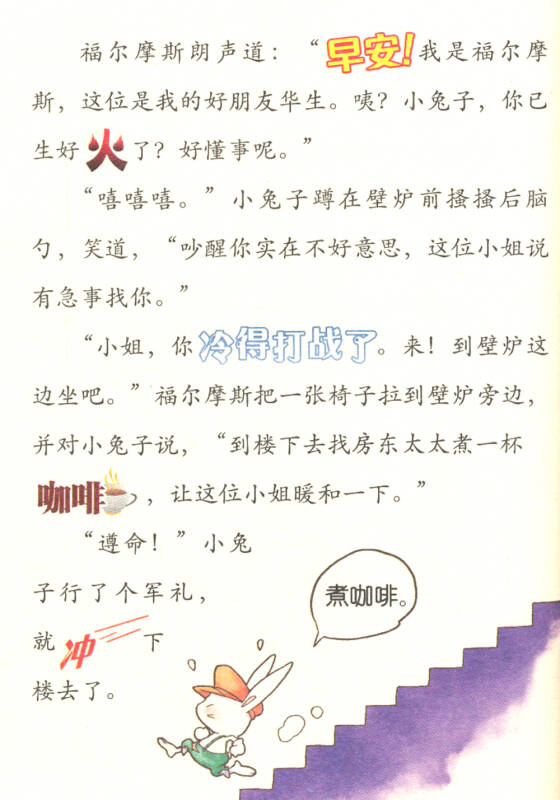 福尔摩斯朗声道：“早安！我是福尔摩
斯，这位是我的好朋友华生。咦？小兔子，你已
生好火了？好懂事呢。”
“嘻嘻嘻。”小兔子蹲在壁炉前搔搔后脑
勺，笑道，“吵醒你实在不好意思，这位小姐说
有急事找你。”
“小姐，你冷得打战了。来！到壁炉这
边坐吧。”福尔摩斯把一张椅子拉到壁炉旁边，
并对小兔子说，“到楼下去找房东太太煮一杯
咖啡，让这位小姐暖和一下。”
“遵命！”小兔
子行了个军礼，
就冲下
楼去了。
煮咖啡。